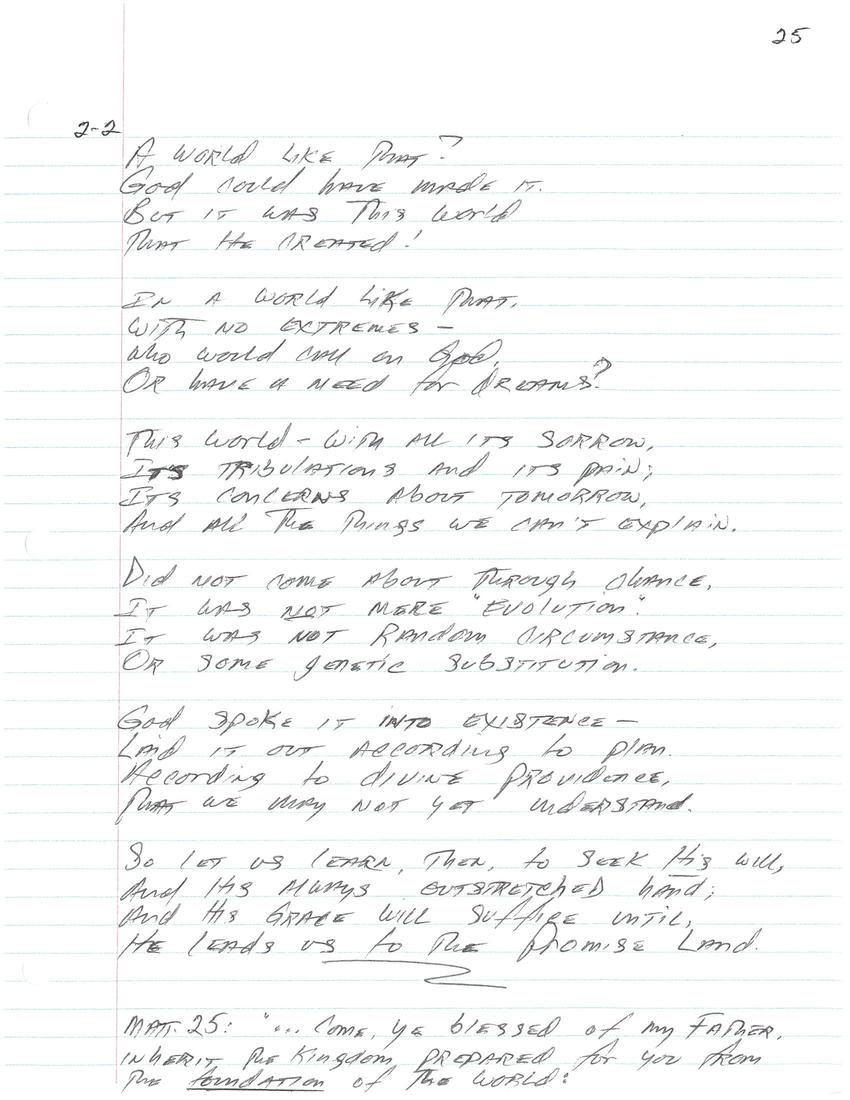 25
2-2
A WORLD LIKE THAT?
God could have made it.
But it was this world
That He created!
In a world like that,
With no extremes -
Who would call on God,
Or have a need for dreams?
This world - with all its sorrow,
Its tribulations and its pain;
Its concerns about tomorrow,
And all the things we can't explain.
Did not come about through chance,
It was not mere "evolution".
It was not random circumstance,
Or some genetic substitution.
God spoke it into existence -
Laid it out according to plan.
According to divine providence,
That we may not yet understand.
So let us learn, then, to seek His will,
And His always outstretched hand;
And His grace will suffice until,
He leads us to the Promise Land.
Mat. 25: "... Come, ye blessed of my Father,
inherit the Kingdom prepared for you from
the foundation of the world: